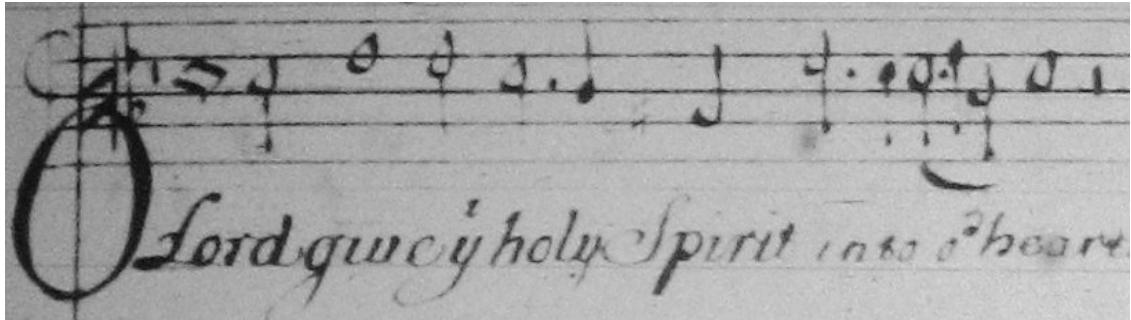 O Lord giue yͤ holy Spirit into oʳ heart